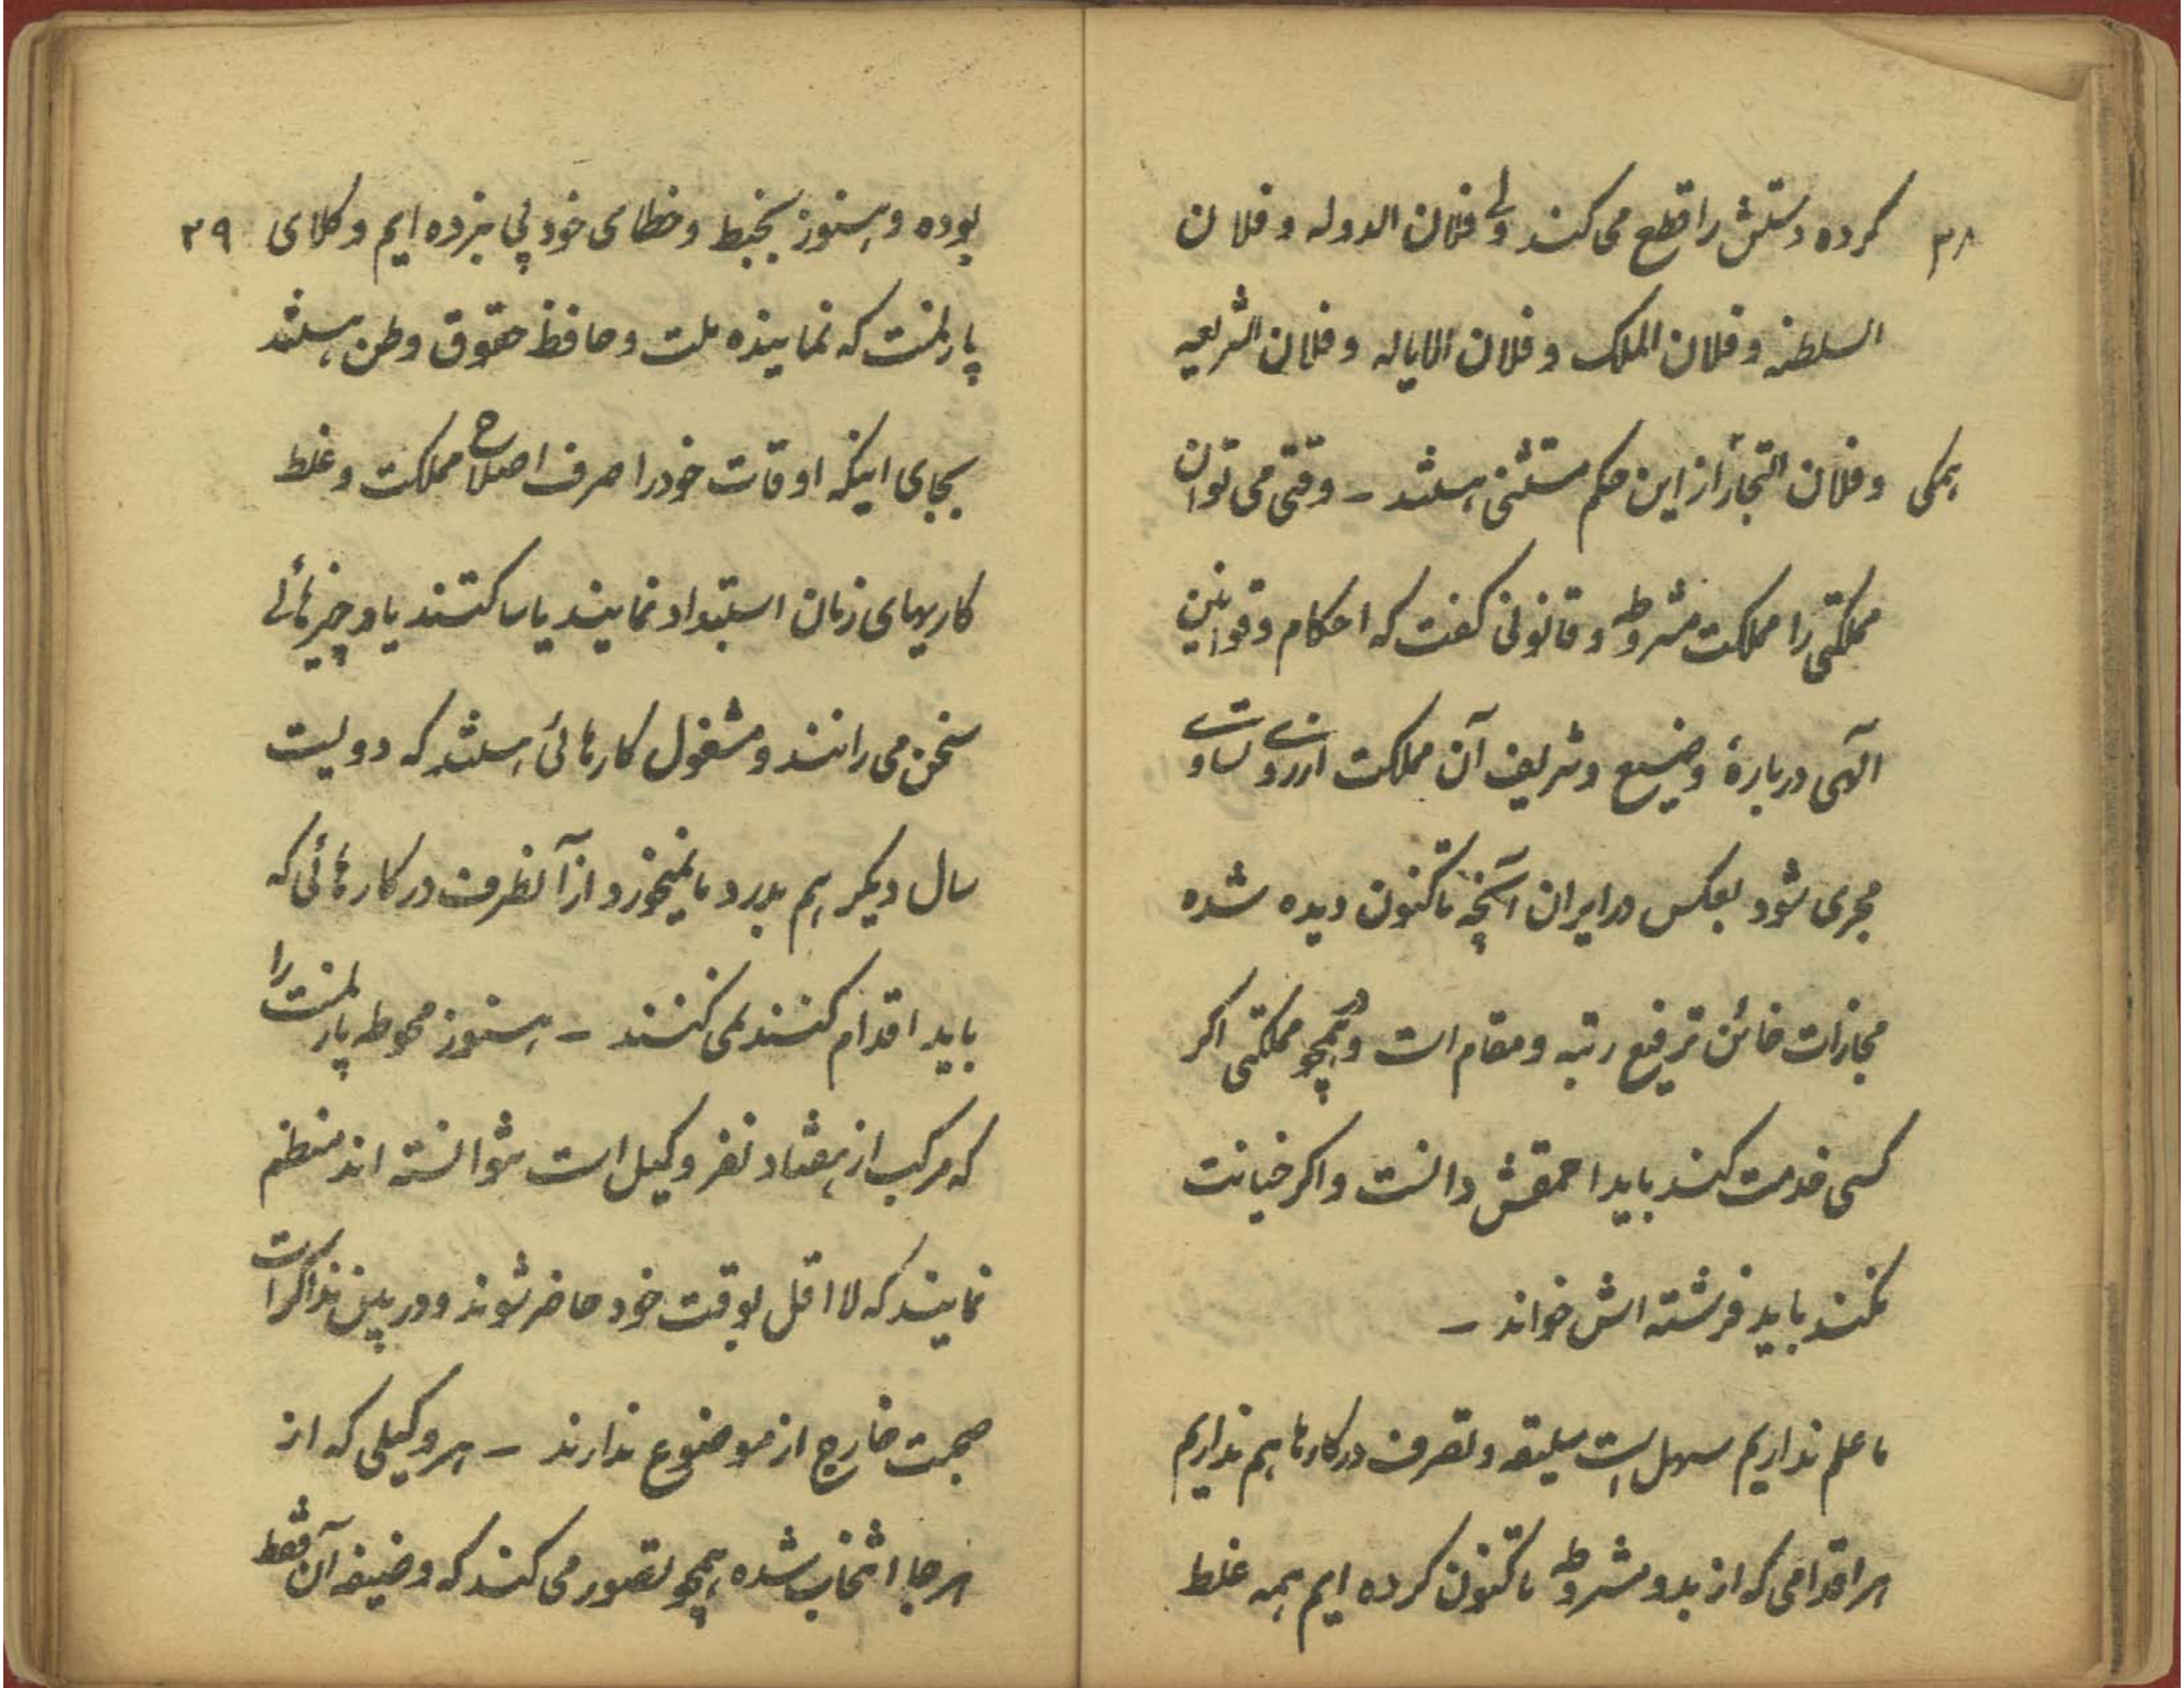 ۳۸ کرده دستش را قطع می کند ولی فلان الدوله و فلان
السلطنه و فلان الملک و فلان الایاله و فلان الشریعه
و فلان التجار از این حکم مستثنی هستند – وقتی می توان
همکی
مملکتی را مملکت مشروطه و قانونی کفت که احکام و قوانین
الهی دربارهٔ وضیع و شریف آن مملکت از روی تساوی
مجری شود بعکس در ایران آنچه تاکنون دیده شده
مجازات خائن ترفیع رتبه و مقام است و در همچو مملکتی اکر
کسی خدمت کند باید احمقش دانست و اکر خیانت
نکند باید فرشته اش خواند –
ما علم نداریم سهل است سلیقه و تصرف در کارها هم نداریم
هر اقدامی که از بدو مشروطه تاکنون کرده ایم همه غلط
۳۹
بوده و هنوز بخبط و خطای خود پی نبرده ایم وکلای
پارلمنت که نماینده ملت و حافظ حقوق وطن هستند
بجای اینکه اوقات خود را صرف اصلاح مملکت و غلط
کاریهای زمان استبداد نمایند یا ساکتند یا در چیزهائی
سخن می رانند و مشغول کارهائی هستند که دویست
سال دیکر هم بدرد ما نمیخورد و از آنطرف در کارهائی که
باید اقدام کنند نمی کنند – هنوز محوطه پارلمنت را
که مرکب از هفتاد نفر وکیل است نتوانسته اند منظم
نمایند که لااقل بوقت خود حاضر شوند و در بین مذاکرات
صحبت خارج از موضوع ندارند – هر وکیلی که از
هر جا انتخاب شده همچو تصور می کند که وضیفه آن فقط